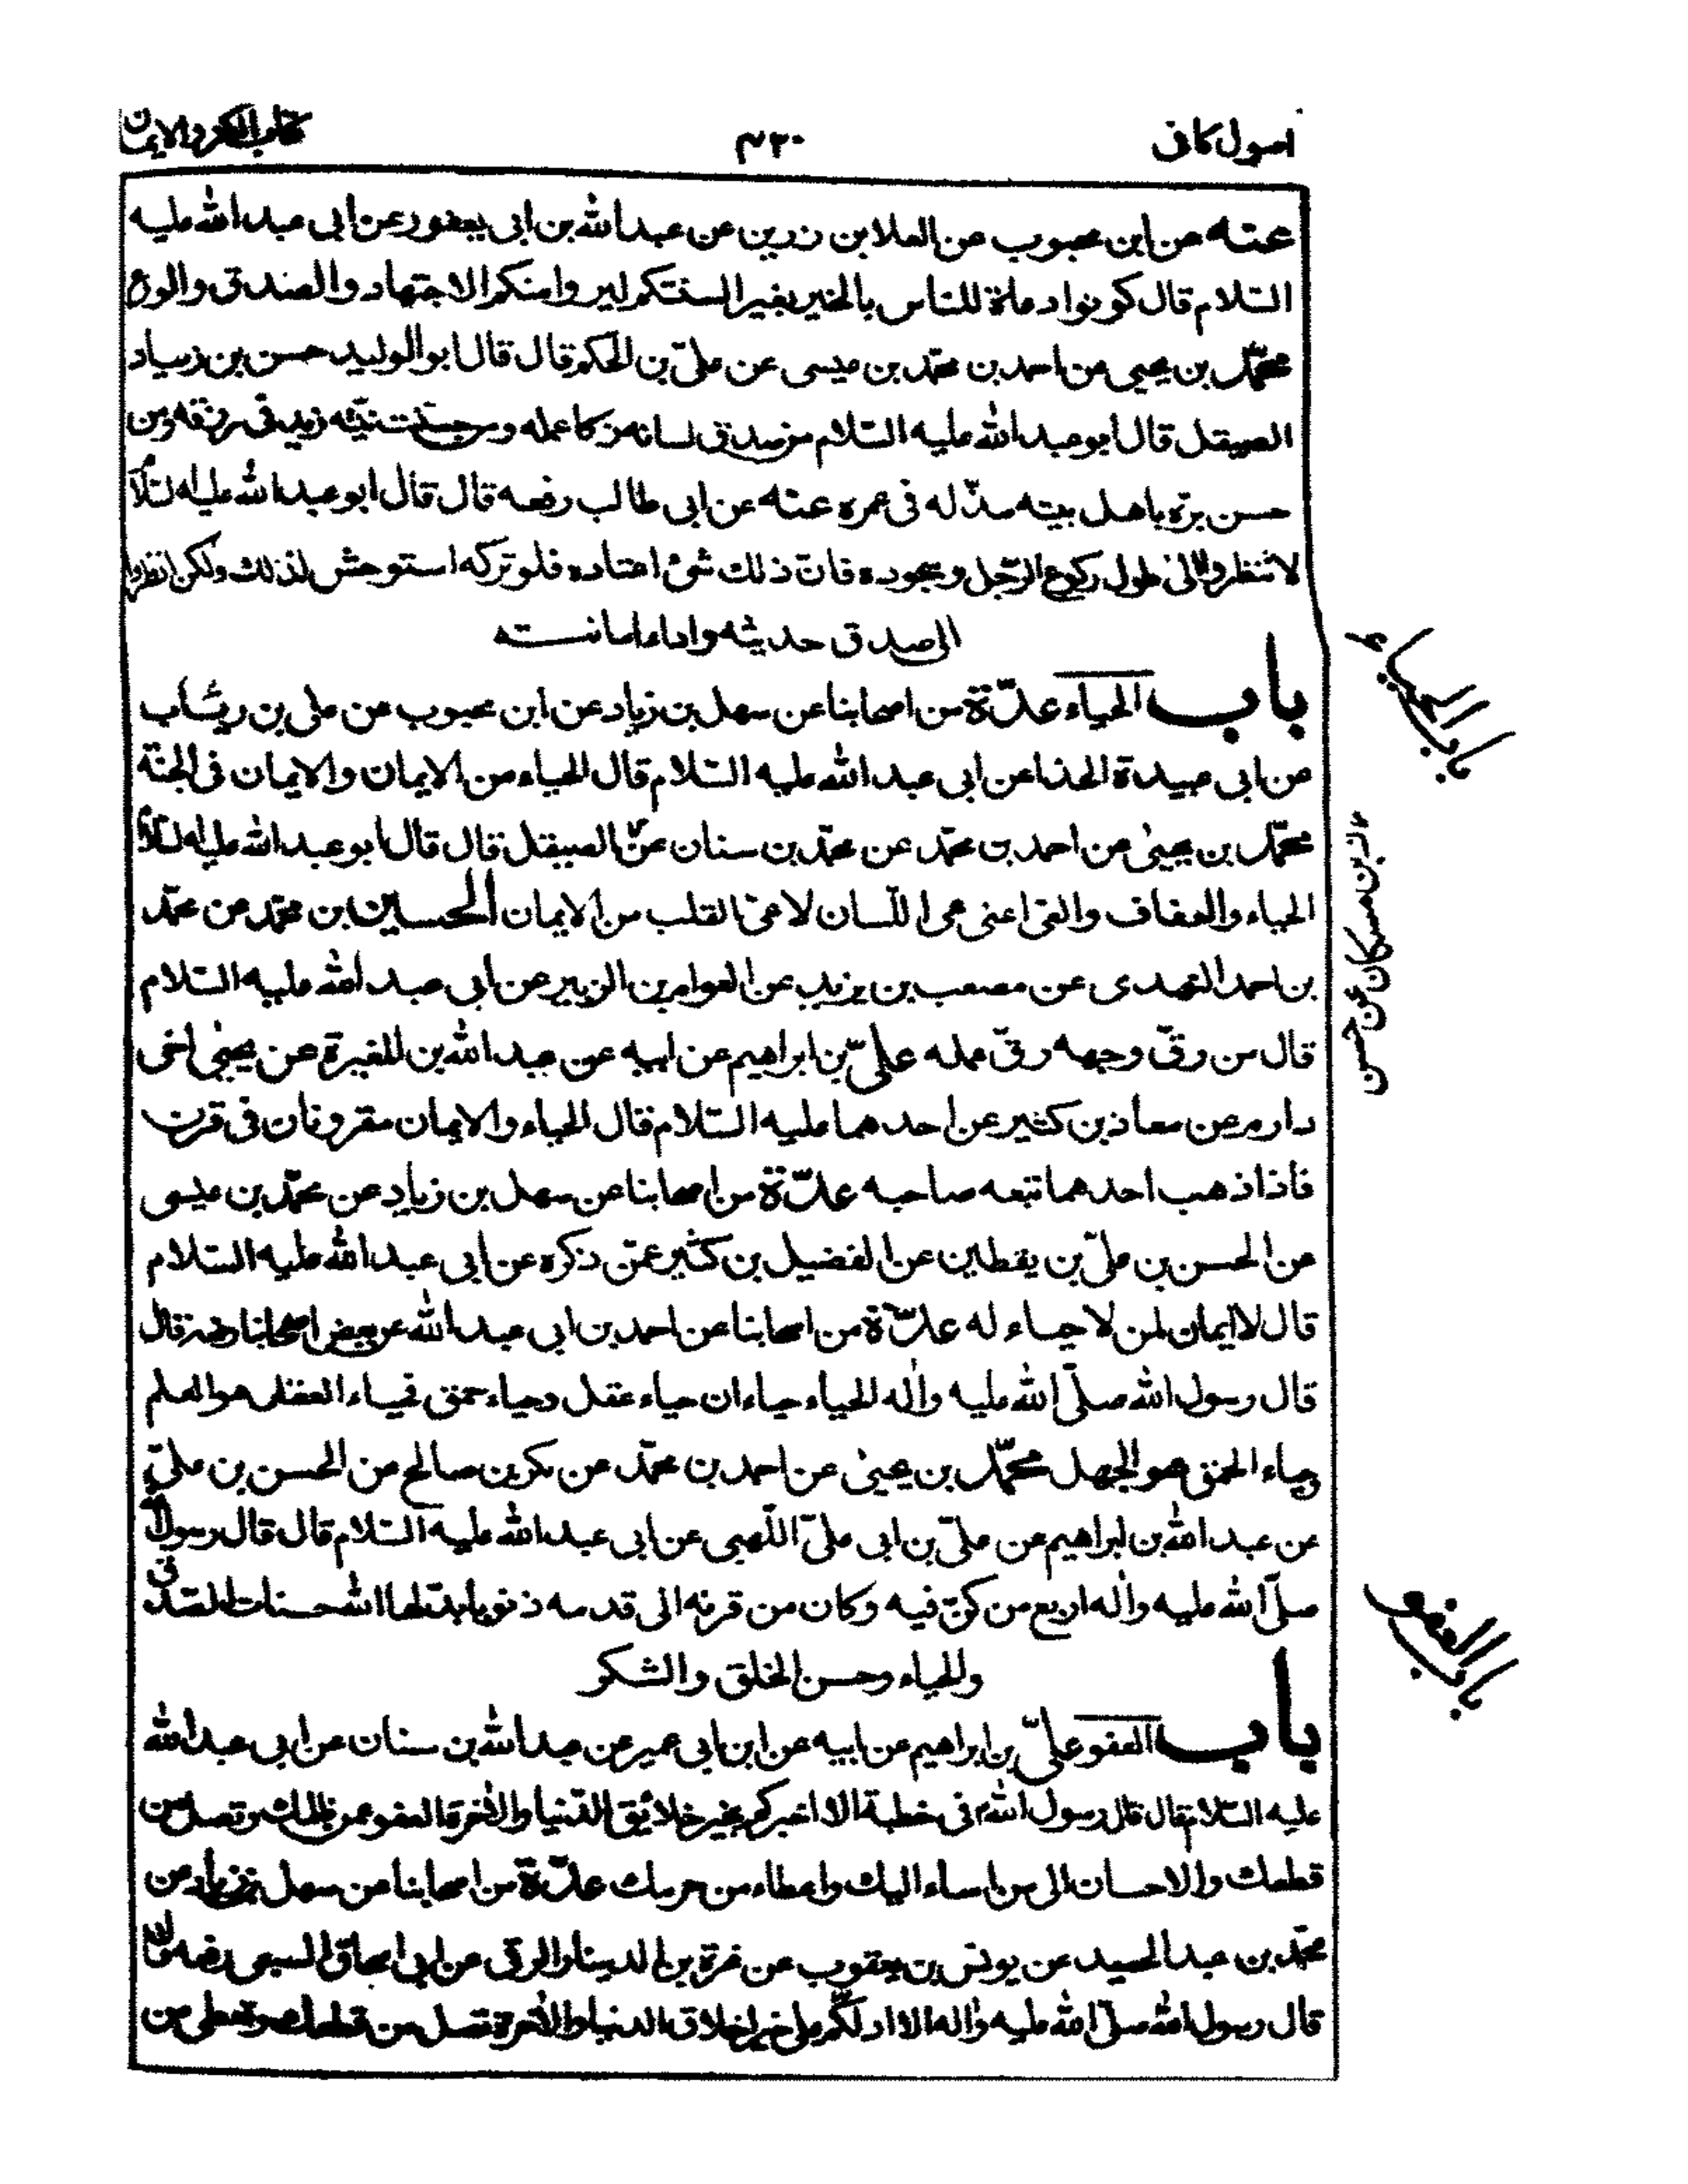 اصول کافی
۴۲۰
کتاب الکفر والایمان
عنه عن ابن محبوب عن العلا بن رزین عن عبدالله بن ابی یعفور عن ابی عبدالله علیه
السّلام قال کونوا دعاة للنّاس بالخیر بغیر السنتکم لیروا منکم الاجتهاد والصّدق والورع
محمّد بن یحیی عن احمد بن محمّد بن عیسی عن علیّ بن الحکم قال قال ابوالولید حسن بن زیاد
الصیقل قال ابوعبدالله علیه السّلام من صدق لسانه زکا عمله ومن حسنت نیّته زید فی رزقه ومن
حسن برّه باهل بیته مدّ له فی عمره عنه عن ابی طالب رفعه قال قال ابوعبدالله علیه السّلام
لا تنظروا الی طول رکوع الرّجل وسجوده فانّ ذلک شئ اعتاده فلو ترکه استوحش لذلک ولکن انظروا
الی صدق حدیثه واداء امانته
باب الحیاء عدّة من اصحابنا عن سهل بن زیاد عن ابن محبوب عن علی بن رئاب
عن ابی عبیدة الحذا عن ابی عبدالله علیه السّلام قال الحیاء من الایمان والایمان فی الجنّة
محمّد بن یحیی عن احمد بن محمّد عن محمّد بن سنان عن الصیقل قال قال ابوعبدالله علیه السّلام
الحیاء والعفاف والعیّ اعنی عی اللّسان لا عیّ القلب من الایمان الحسین بن محمّد عن محمّد
بن احمد النّهدی عن مصعب بن یزید عن العوام بن الزبیر عن ابی عبدالله علیه السّلام
قال من رقّ وجهه رقّ عمله علیّ بن ابراهیم عن ابیه عن عبدالله بن المغیرة عن یحیی اخی
دارم عن معاذ بن کثیر عن احدهما علیه السّلام قال الحیاء والایمان مقرونان فی قرن
فاذا ذهب احدهما تبعه صاحبه عدّة من اصحابنا عن سهل بن زیاد عن محمّد بن عیسی
عن الحسن بن علیّ بن یقطین عن الفضیل بن کثیر عمّن ذکره عن ابی عبدالله علیه السّلام
قال لا ایمان لمن لا حیاء له عدّة من اصحابنا عن احمد بن ابی عبدالله عن بعض اصحابنا رفعه قال
قال رسول الله صلّی الله علیه وآله الحیاء حیاءان حیاء عقل وحیاء حمق فحیاء العقل هو العلم
وحیاء الحمق هو الجهل محمّد بن یحیی عن احمد بن محمّد عن بکر بن صالح عن الحسن بن علیّ
عن عبدالله بن ابراهیم عن علیّ بن ابی علیّ اللّهبی عن ابی عبدالله علیه السّلام قال قال رسول الله
صلّی الله علیه وآله اربع من کنّ فیه وکان من قرنه الی قدمه ذنوبا بدّلها الله حسنات الصّدق
والحیاء وحسن الخلق والشکر
باب العفو علیّ بن ابراهیم عن ابیه عن ابن ابی عمیر عن عبدالله بن سنان عن ابی عبدالله
علیه السّلام قال قال رسول الله فی خطبة الا اخبرکم بخیر خلائق الدّنیا والآخرة العفو عمن ظلمک وتصل من
قطعک والاحسان الی من اساء الیک واعطاء من حرمک عدّة من اصحابنا عن سهل بن زیاد عن
محمّد بن عبد الحمید عن یونس بن یعقوب عن غرة بن الدینار الرقی عن ابی اسحاق السبیعی رفعه قال
قال رسول الله صلّی الله علیه وآله الا ادلکم علی خیر اخلاق الدنیا والآخرة تصل من قطعک وتعطی من
باب الحیاء
ابن مسکان عن حسن
باب العفو